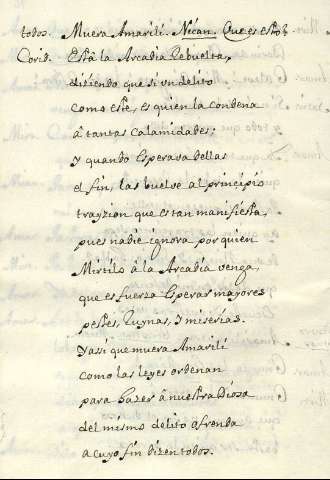 todos. Muera Amarili. Nican. Que es esto?
Corid. Està la Arcadia Rebuelta,
diziendo que si un delito
como este, es quien la condena
â tantas calamidades;
y quando Esperava dellas
el fin, las buelve al principio
trayzion que es tan manifiesta,
pues nadie ignora por quien
Mirtilo â la Arcadia venga,
que es fuerza Esperar mayores
pestes, Ruynas, y miserias.
Y assi que muera Amarili
como las leyes ordenan
para hazer â nuestra Diosa
del mismo delito ofrenda
a cuyo fin dizen todos.